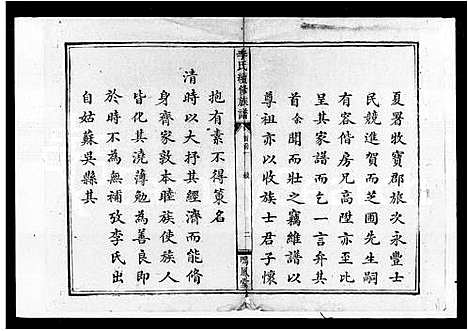 夏署牧寶郡旅次永豐士
民競進賀而芝圃先生嗣
有容偕房兄高陞亦至殿
呈其家譜而乞一言弁其
首余聞而壯之竊維譜以
尊祖亦以收族士君子懷
李氏續修族譜
二
鳴鳳堂
抱有素不得策名
清時以大抒其經濟而能脩
身齊家敦本睦族使族人
皆化其澆薄勉為善良即
於時不為無補攷李氏出
自姑蘇吳縣其